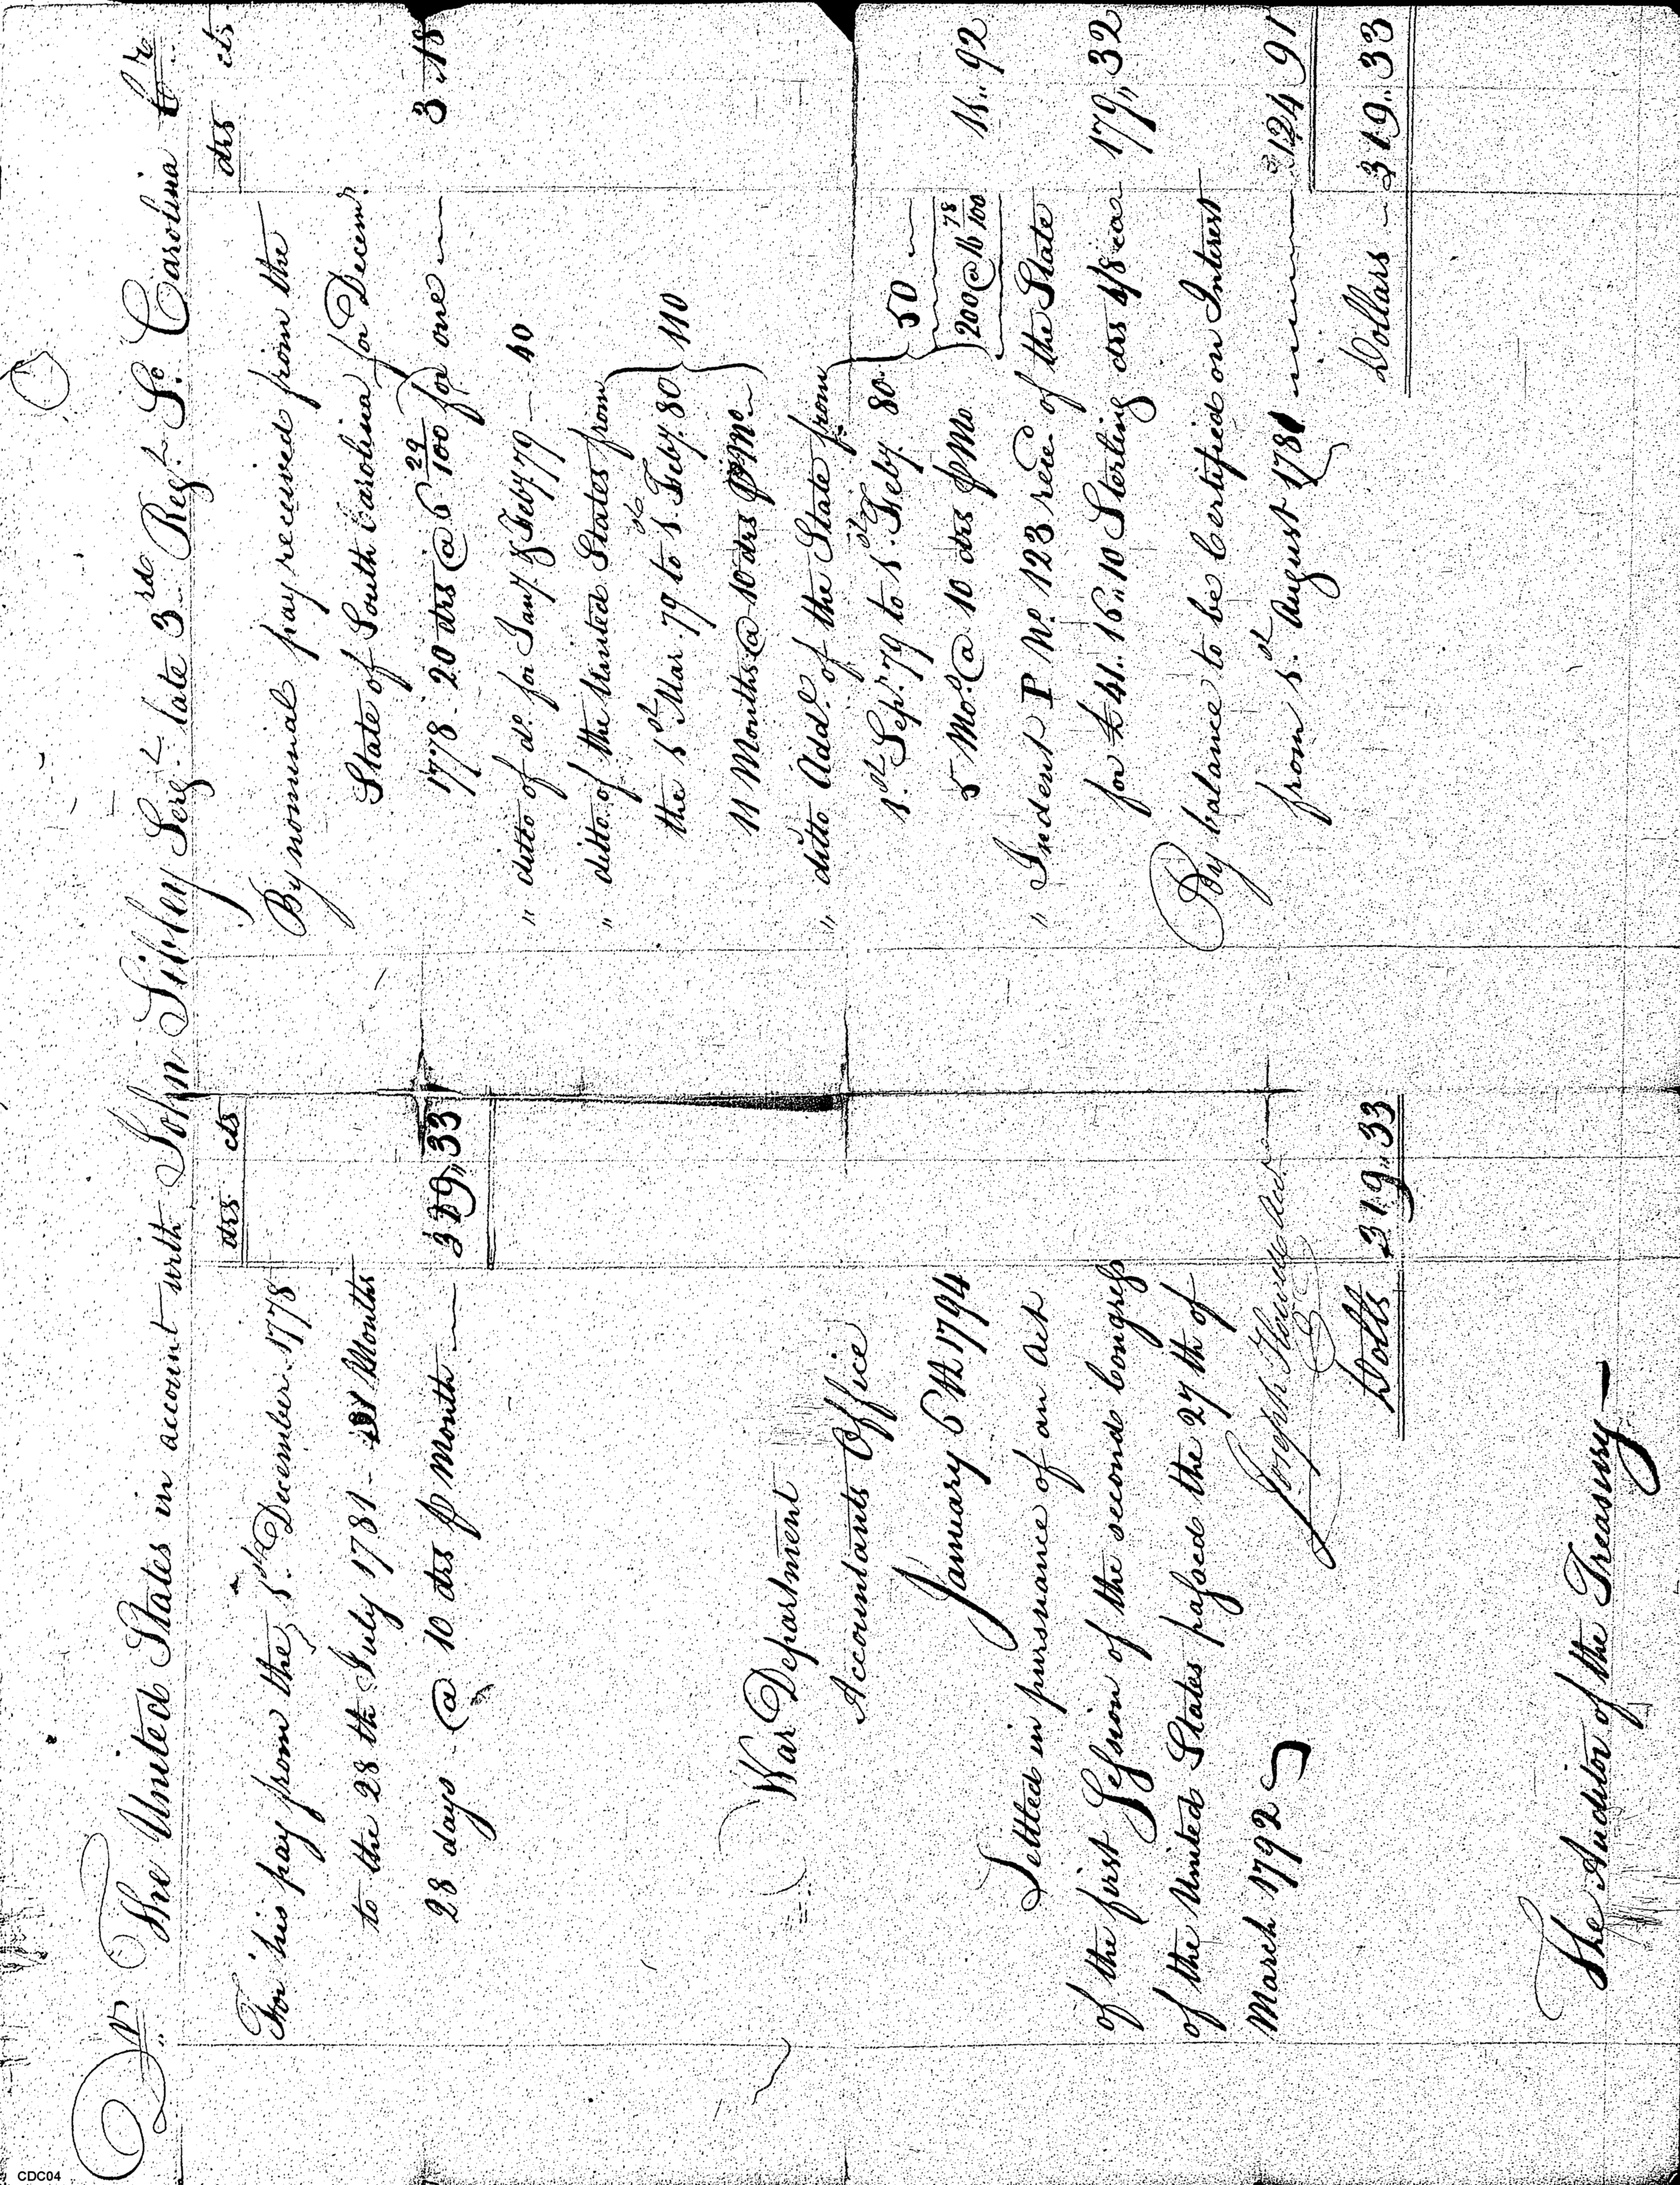 Dr The United States in account with John Sibley Sergt. late 3rd Regt. So. Carolina Cr
drs cts
For his pay from the 1st December 1778
to the 28th July 1781 - 31 Months
28 days @ 10 drs p Month — 319,,33
War Department
Accountants Office
January 6th 1794
Settled in pursuance of an Act
of the first Session of the second Congress
of the United States passed the 27th of
March 1792
Joseph Howell Acct
Dolls 319,,33
The Auditor of the Treasury —
drs cts
By nominal pay received from the
State of South Carolina for Decemr.
1778 - 20 drs @ 6 29/100 for one — 3,,18
" ditto of do. for Jany. & Feby. 79 — 40
" ditto of the United States from
the 1st Mar. 79 to 1st Feby. 80 } 110
11 Months @ 10 drs p Mo.
" ditto Addl. of the State from
1st Sepr. 79 to 1st Feby. 80 } 50
5 Mos. @ 10 drs p Mo. 200 @ 16 78/100 11,,92
" Indent P No. 123 recd of the State
for £41,,16,,10 Sterling drs 4/8 ea 179,,32
By balance to be Certified on Interest
from 1st August 1781 — 124 91
Dollars — 319,,33
CDC04